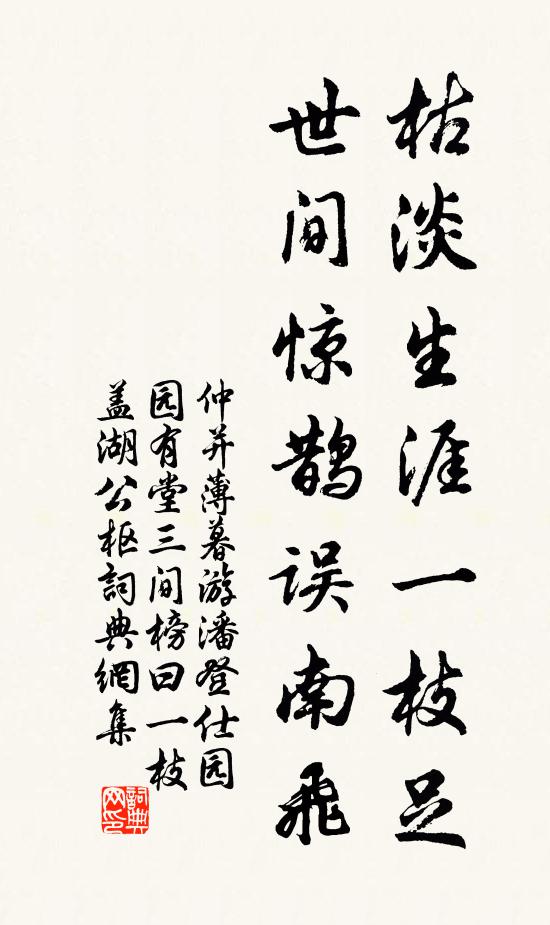 枯淡生涯一枝足
世间惊鹊误南飛
仲并薄暮游潘登仕园
园有堂三间榜曰一枝
盖湖公枢詞典網集
詞典
网印